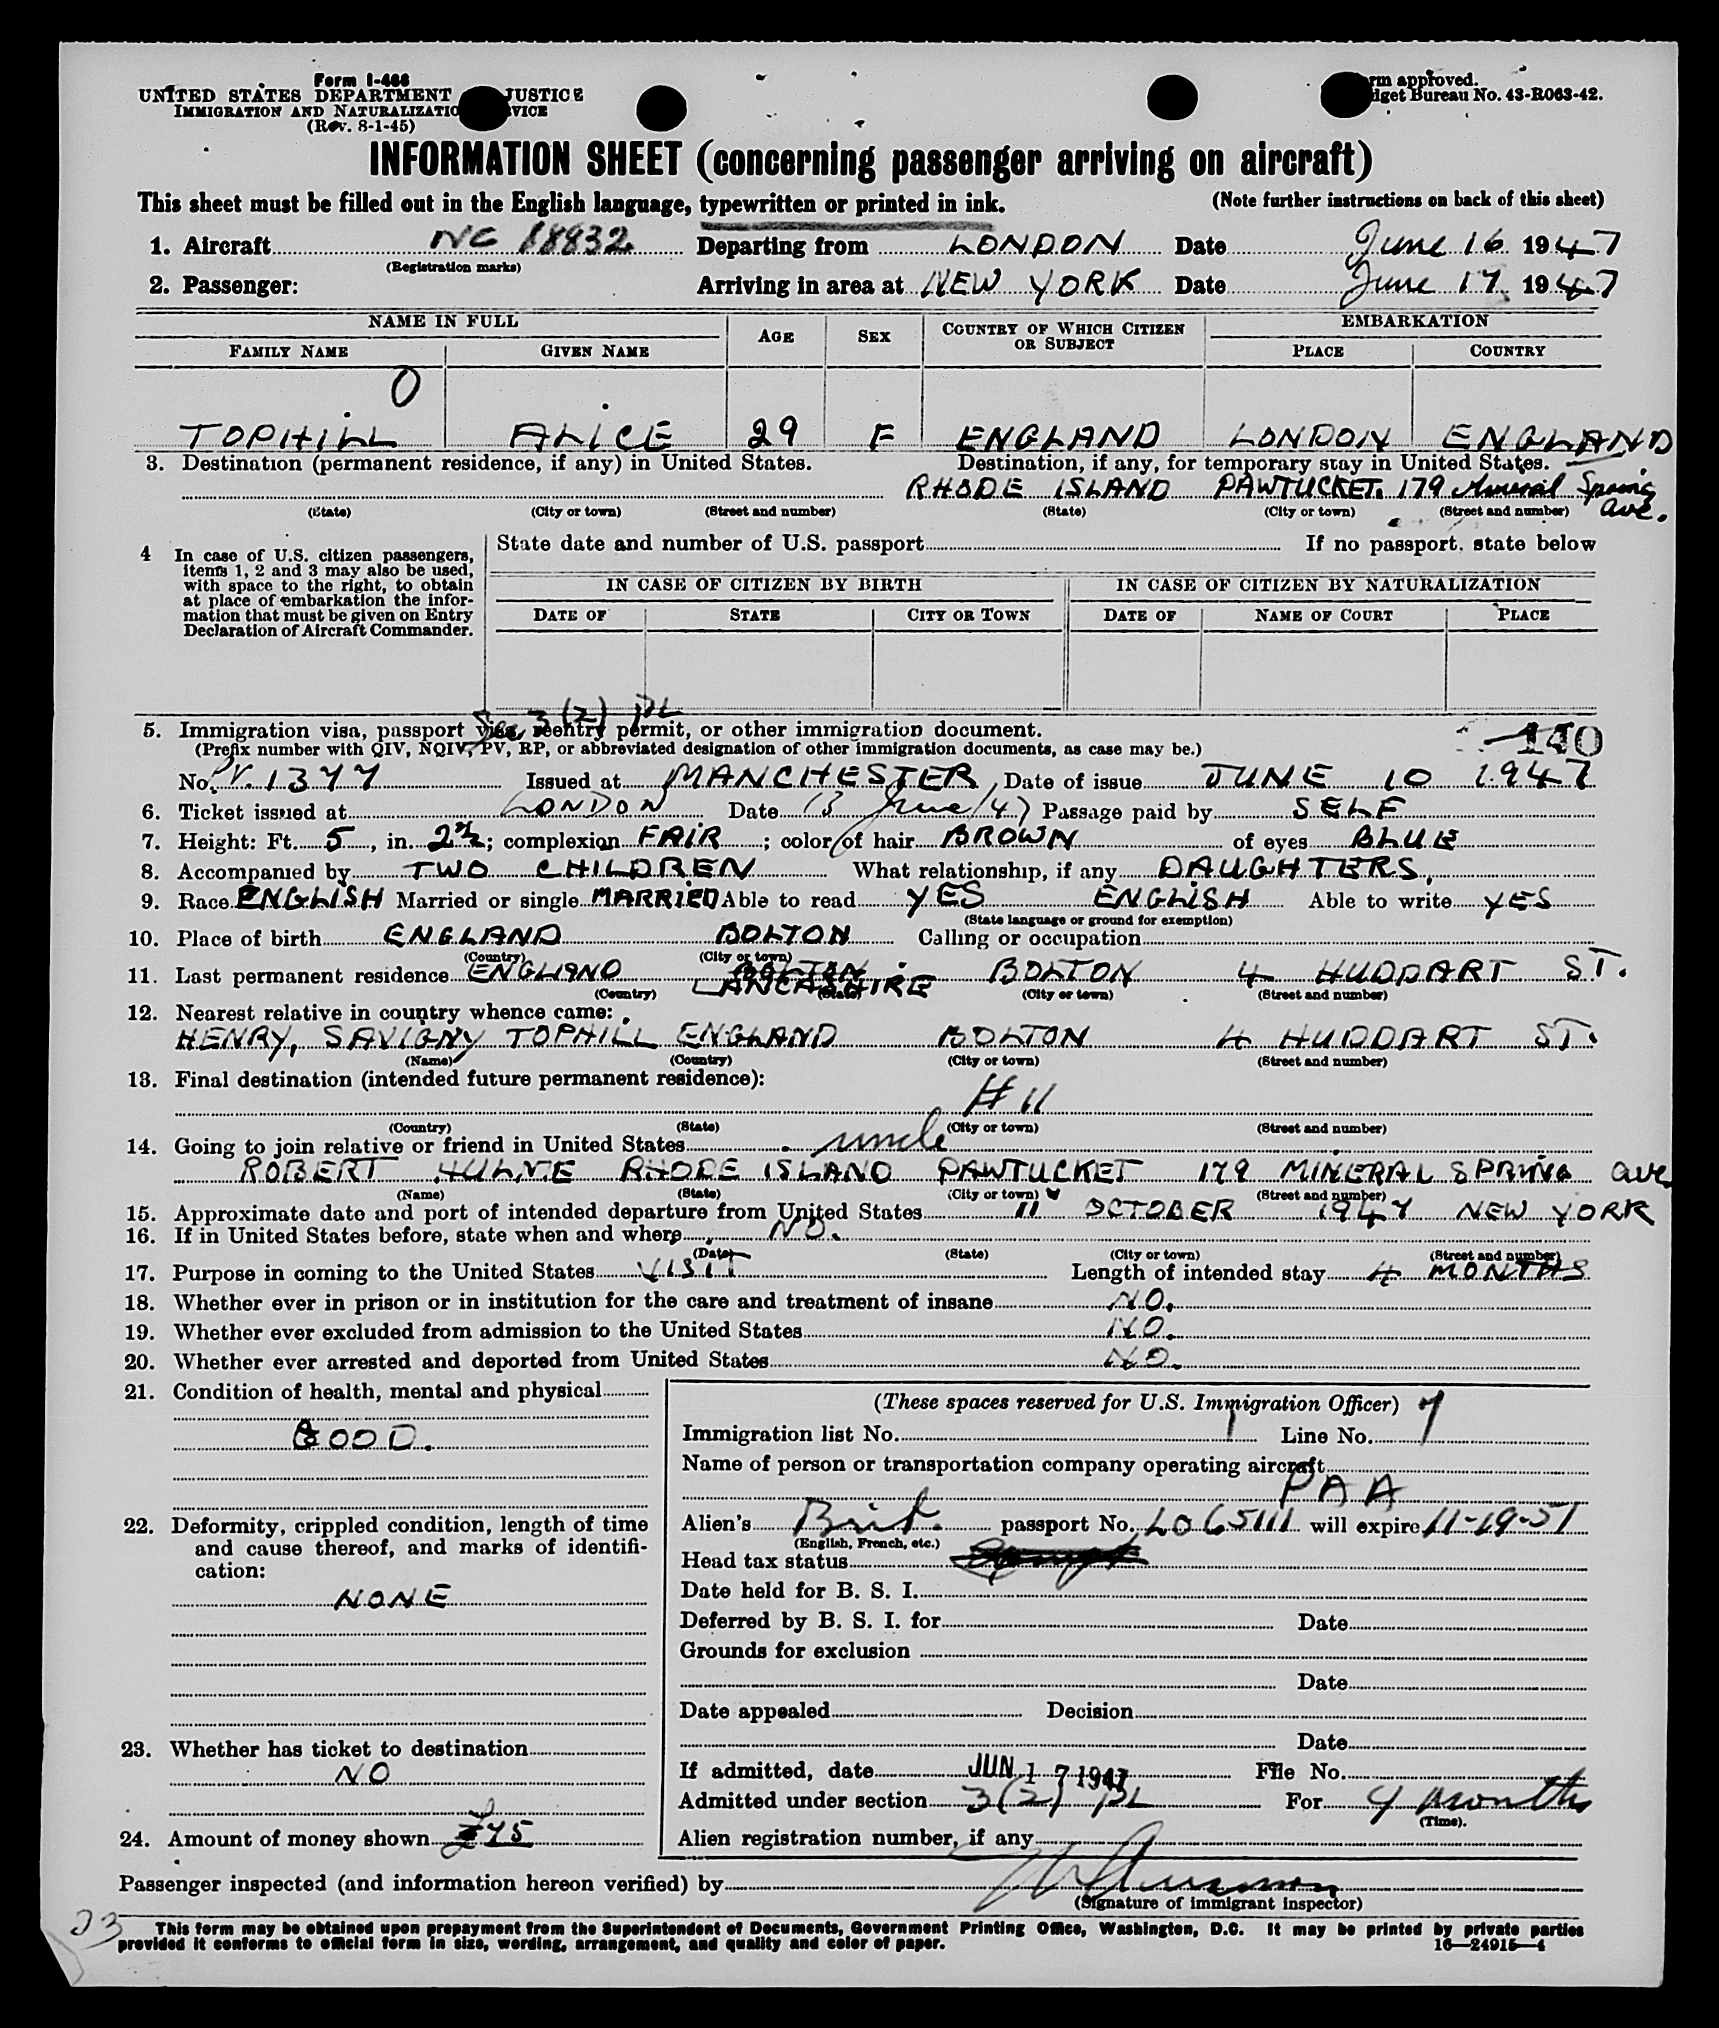 Form I-466
UNITED STATES DEPARTMENT JUSTICE
IMMIGRATION AND NATURALIZATIO VICE
(Rev. 8-1-45)
rm approved.
dget Bureau No. 43-R063-42.
INFORMATION SHEET (concerning passenger arriving on aircraft)
This sheet must be filled out in the English language, typewritten or printed in ink. (Note further instructions on back of this sheet)
1. Aircraft NC 18832 Departing from LONDON Date June 16 1947
(Registration marks)
2. Passenger: Arriving in area at NEW YORK Date June 17 1947
NAME IN FULL AGE SEX COUNTRY OF WHICH CITIZEN OR SUBJECT EMBARKATION
FAMILY NAME GIVEN NAME PLACE COUNTRY
0
TOPHILL ALICE 29 F ENGLAND LONDON ENGLAND
3. Destination (permanent residence, if any) in United States. Destination, if any, for temporary stay in United States.
RHODE ISLAND PAWTUCKET. 179 Mineral Spring Ave.
(State) (City or town) (Street and number) (State) (City or town) (Street and number)
4 In case of U.S. citizen passengers, items 1, 2 and 3 may also be used, with space to the right, to obtain at place of embarkation the information that must be given on Entry Declaration of Aircraft Commander.
State date and number of U.S. passport If no passport, state below
IN CASE OF CITIZEN BY BIRTH IN CASE OF CITIZEN BY NATURALIZATION
DATE OF STATE CITY OR TOWN DATE OF NAME OF COURT PLACE
See 3(2) PL
5. Immigration visa, passport visa, reentry permit, or other immigration document.
(Prefix number with QIV, NQIV, PV, RP, or abbreviated designation of other immigration documents, as case may be.)
140
No. PV. 1377 Issued at MANCHESTER Date of issue JUNE 10 1947
6. Ticket issued at LONDON Date 13 June 147 Passage paid by SELF
7. Height: Ft. 5, in. 2½; complexion FAIR; color of hair BROWN of eyes BLUE
8. Accompanied by TWO CHILDREN What relationship, if any DAUGHTERS.
9. Race ENGLISH Married or single MARRIED Able to read YES ENGLISH Able to write YES
(State language or ground for exemption)
10. Place of birth ENGLAND BOLTON Calling or occupation
(Country) (City or town)
11. Last permanent residence ENGLAND BOLTON LANCASHIRE BOLTON 4 HUDDART ST.
(Country) (State) (City or town) (Street and number)
12. Nearest relative in country whence came:
HENRY, SAVIGNY TOPHILL ENGLAND BOLTON 4 HUDDART ST.
(Name) (Country) (City or town) (Street and number)
13. Final destination (intended future permanent residence):
# 11
(Country) (State) (City or town) (Street and number)
14. Going to join relative or friend in United States uncle
ROBERT HULME RHODE ISLAND PAWTUCKET 179 MINERAL SPRING Ave
(Name) (State) (City or town) (Street and number)
15. Approximate date and port of intended departure from United States 11 OCTOBER 1947 NEW YORK
16. If in United States before, state when and where NO.
(Date) (State) (City or town) (Street and number)
17. Purpose in coming to the United States VISIT Length of intended stay 4 MONTHS
18. Whether ever in prison or in institution for the care and treatment of insane NO.
19. Whether ever excluded from admission to the United States NO.
20. Whether ever arrested and deported from United States NO.
21. Condition of health, mental and physical
GOOD.
22. Deformity, crippled condition, length of time and cause thereof, and marks of identification:
NONE
23. Whether has ticket to destination
NO
24. Amount of money shown £75
(These spaces reserved for U.S. Immigration Officer)
Immigration list No. 1 Line No. 7
Name of person or transportation company operating aircraft
PAA
Alien's Brit. passport No. LO 65111 will expire 11-19-51
(English, French, etc.)
Head tax status
Date held for B. S. I.
Deferred by B. S. I. for Date
Grounds for exclusion
Date
Date appealed Decision
Date
If admitted, date JUN 17 1947 File No.
Admitted under section 3(2) PL For 4 months
(Time).
Alien registration number, if any
Passenger inspected (and information hereon verified) by
(Signature of immigrant inspector)
23
This form may be obtained upon prepayment from the Superintendent of Documents, Government Printing Office, Washington, D.C. It may be printed by private parties
provided it conforms to official form in size, wording, arrangement, and quality and color of paper. 16—24915—4